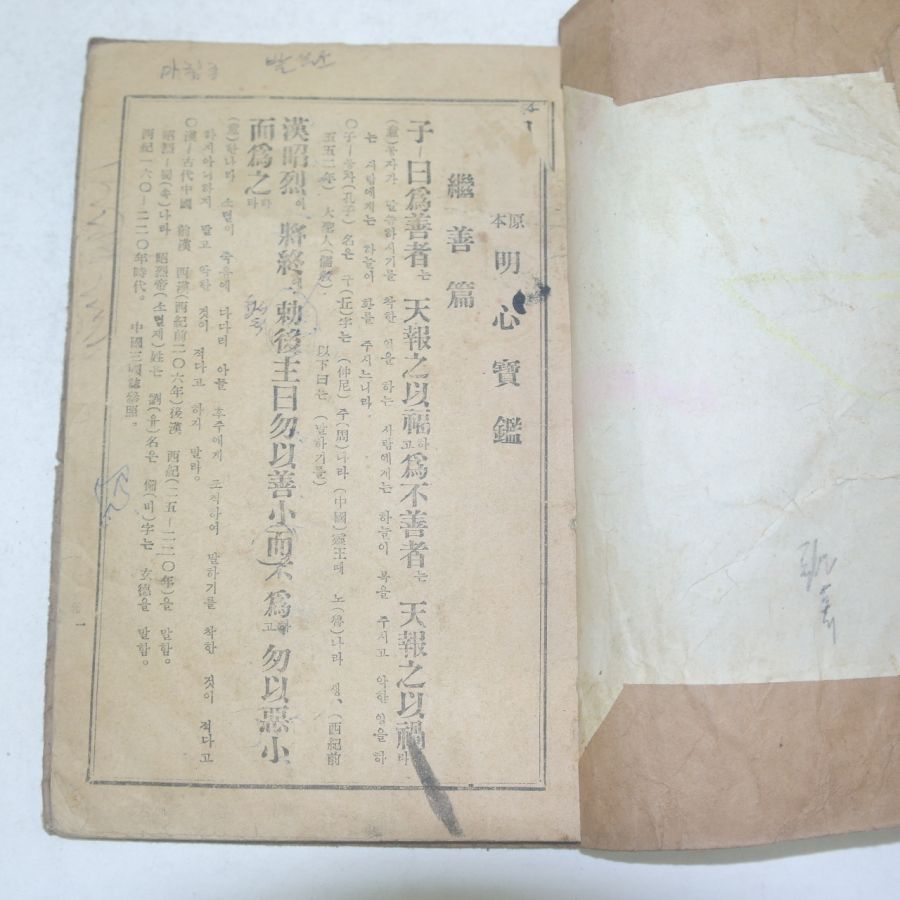 原本 明心寶鑑
繼善篇
子ㅣ曰爲善者는 天報之以福하고 爲不善者는 天報之以禍라
(意)공자가 말슴하시기를 착한 일을 하는 사람에게는 하늘이 복을 주시고 악한 일을 하
는 사람에게는 하늘이 화를 주시느니라.
○子ㅣ공자(孔子) 名은 구(丘)字는 (仲尼) 주(周)나라 (中國)靈王때 노(魯)나라 생、(西紀前
五五二年). 大聖人(儒敎). 以下曰은 (말하기를)
漢昭烈이 將終에 勅後主曰勿以善小(而)不爲하고 勿以惡小
而爲之라
(意)한나라 소렬이 죽음에 다다러 아들 후주에게 조칙하여 말하기를 착한 것이 적다고
하지아니하지 말고 악한 것이 적다고 하지 말라.
○漢ㅣ古代中國 前漢 西漢(西紀前二○六年)後漢 西紀(二五ㅣ二二○年)을 말함。
昭烈ㅣ蜀(촉)나라 昭烈帝(소렬제)姓은 劉(유)名은 備(비)字는 玄德을 말함。
西紀一六○ㅣ二二○年時代。 中國三國誌參照。